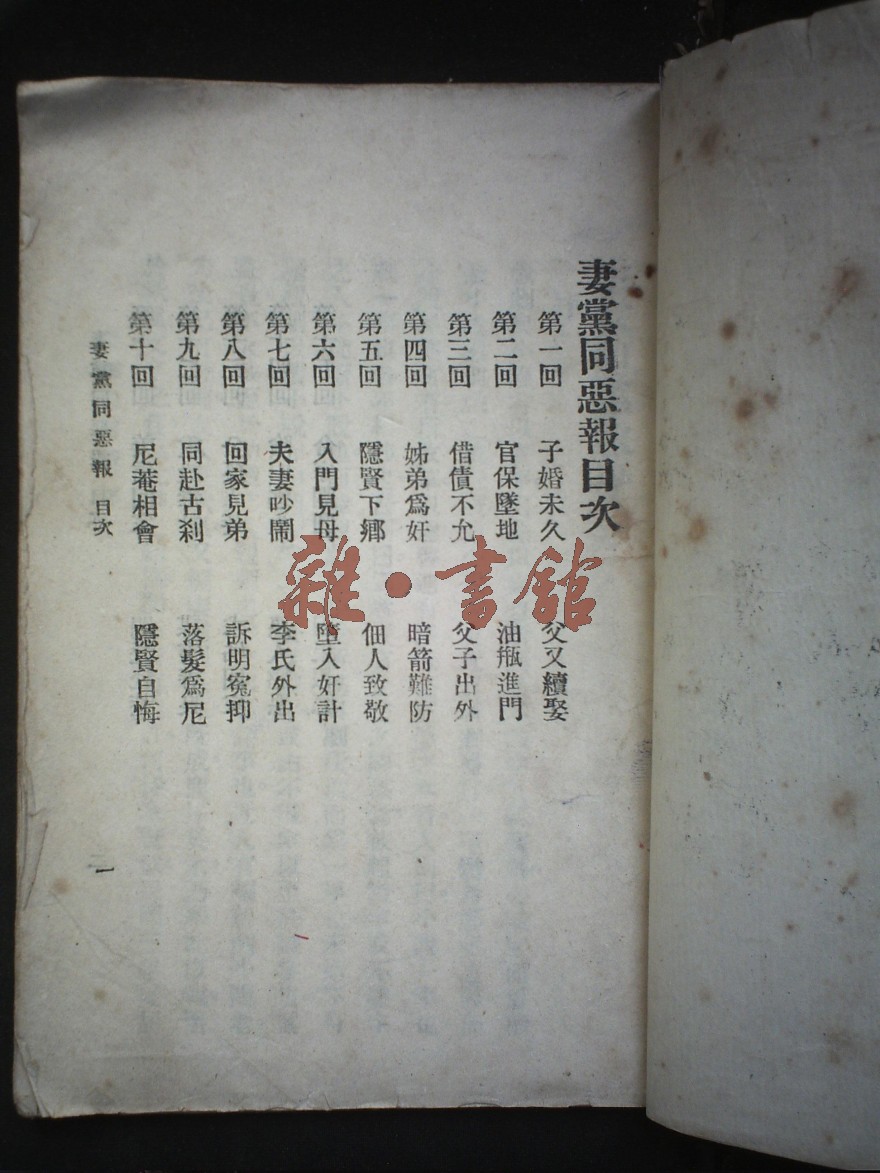 妻黨同惡報目次
第一回 子婚未久 父又續娶
第二回 官保墜地 油瓶進門
第三回 借債不允 父子出外
第四回 姊弟爲奸 暗箭難防
第五回 隱賢下鄉 佃人致敬
第六回 入門見母 墮入奸計
第七回 夫妻吵鬧 李氏外出
第八回 回家見弟 訴明寃抑
第九回 同赴古刹 落髮爲尼
第十回 尼菴相會 隱賢自悔
妻黨同惡報 目次
一
雜·書館